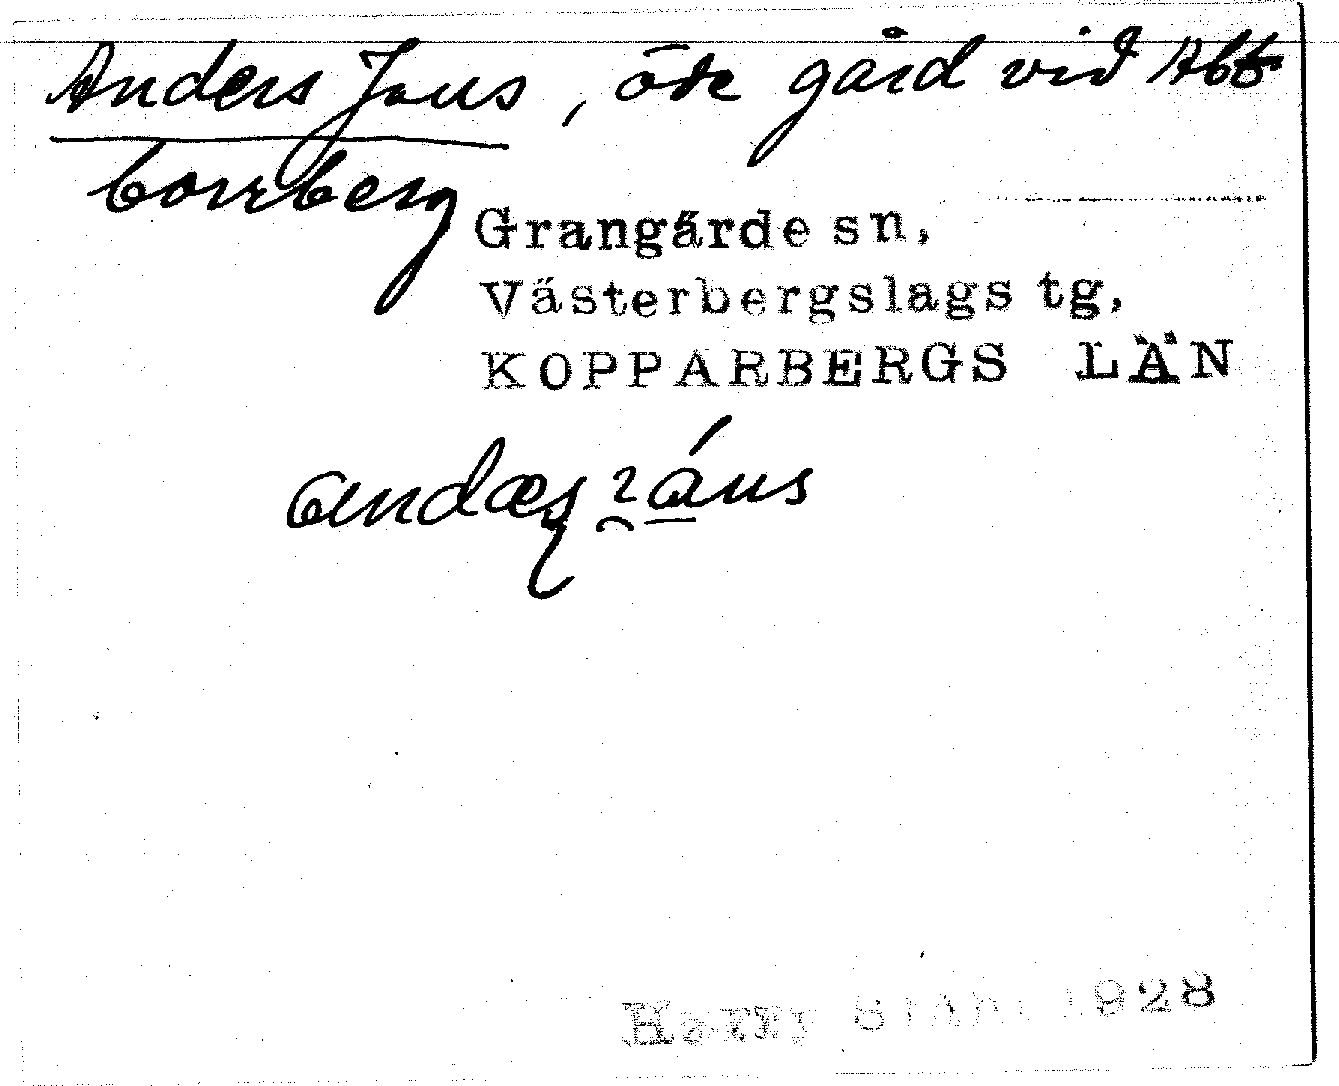 Anders Jans, öde gård vid Abb-
borrberg
Grangärde sn,
Västerbergslags tg,
KOPPARBERGS LÄN
Harry Ståhl 1928